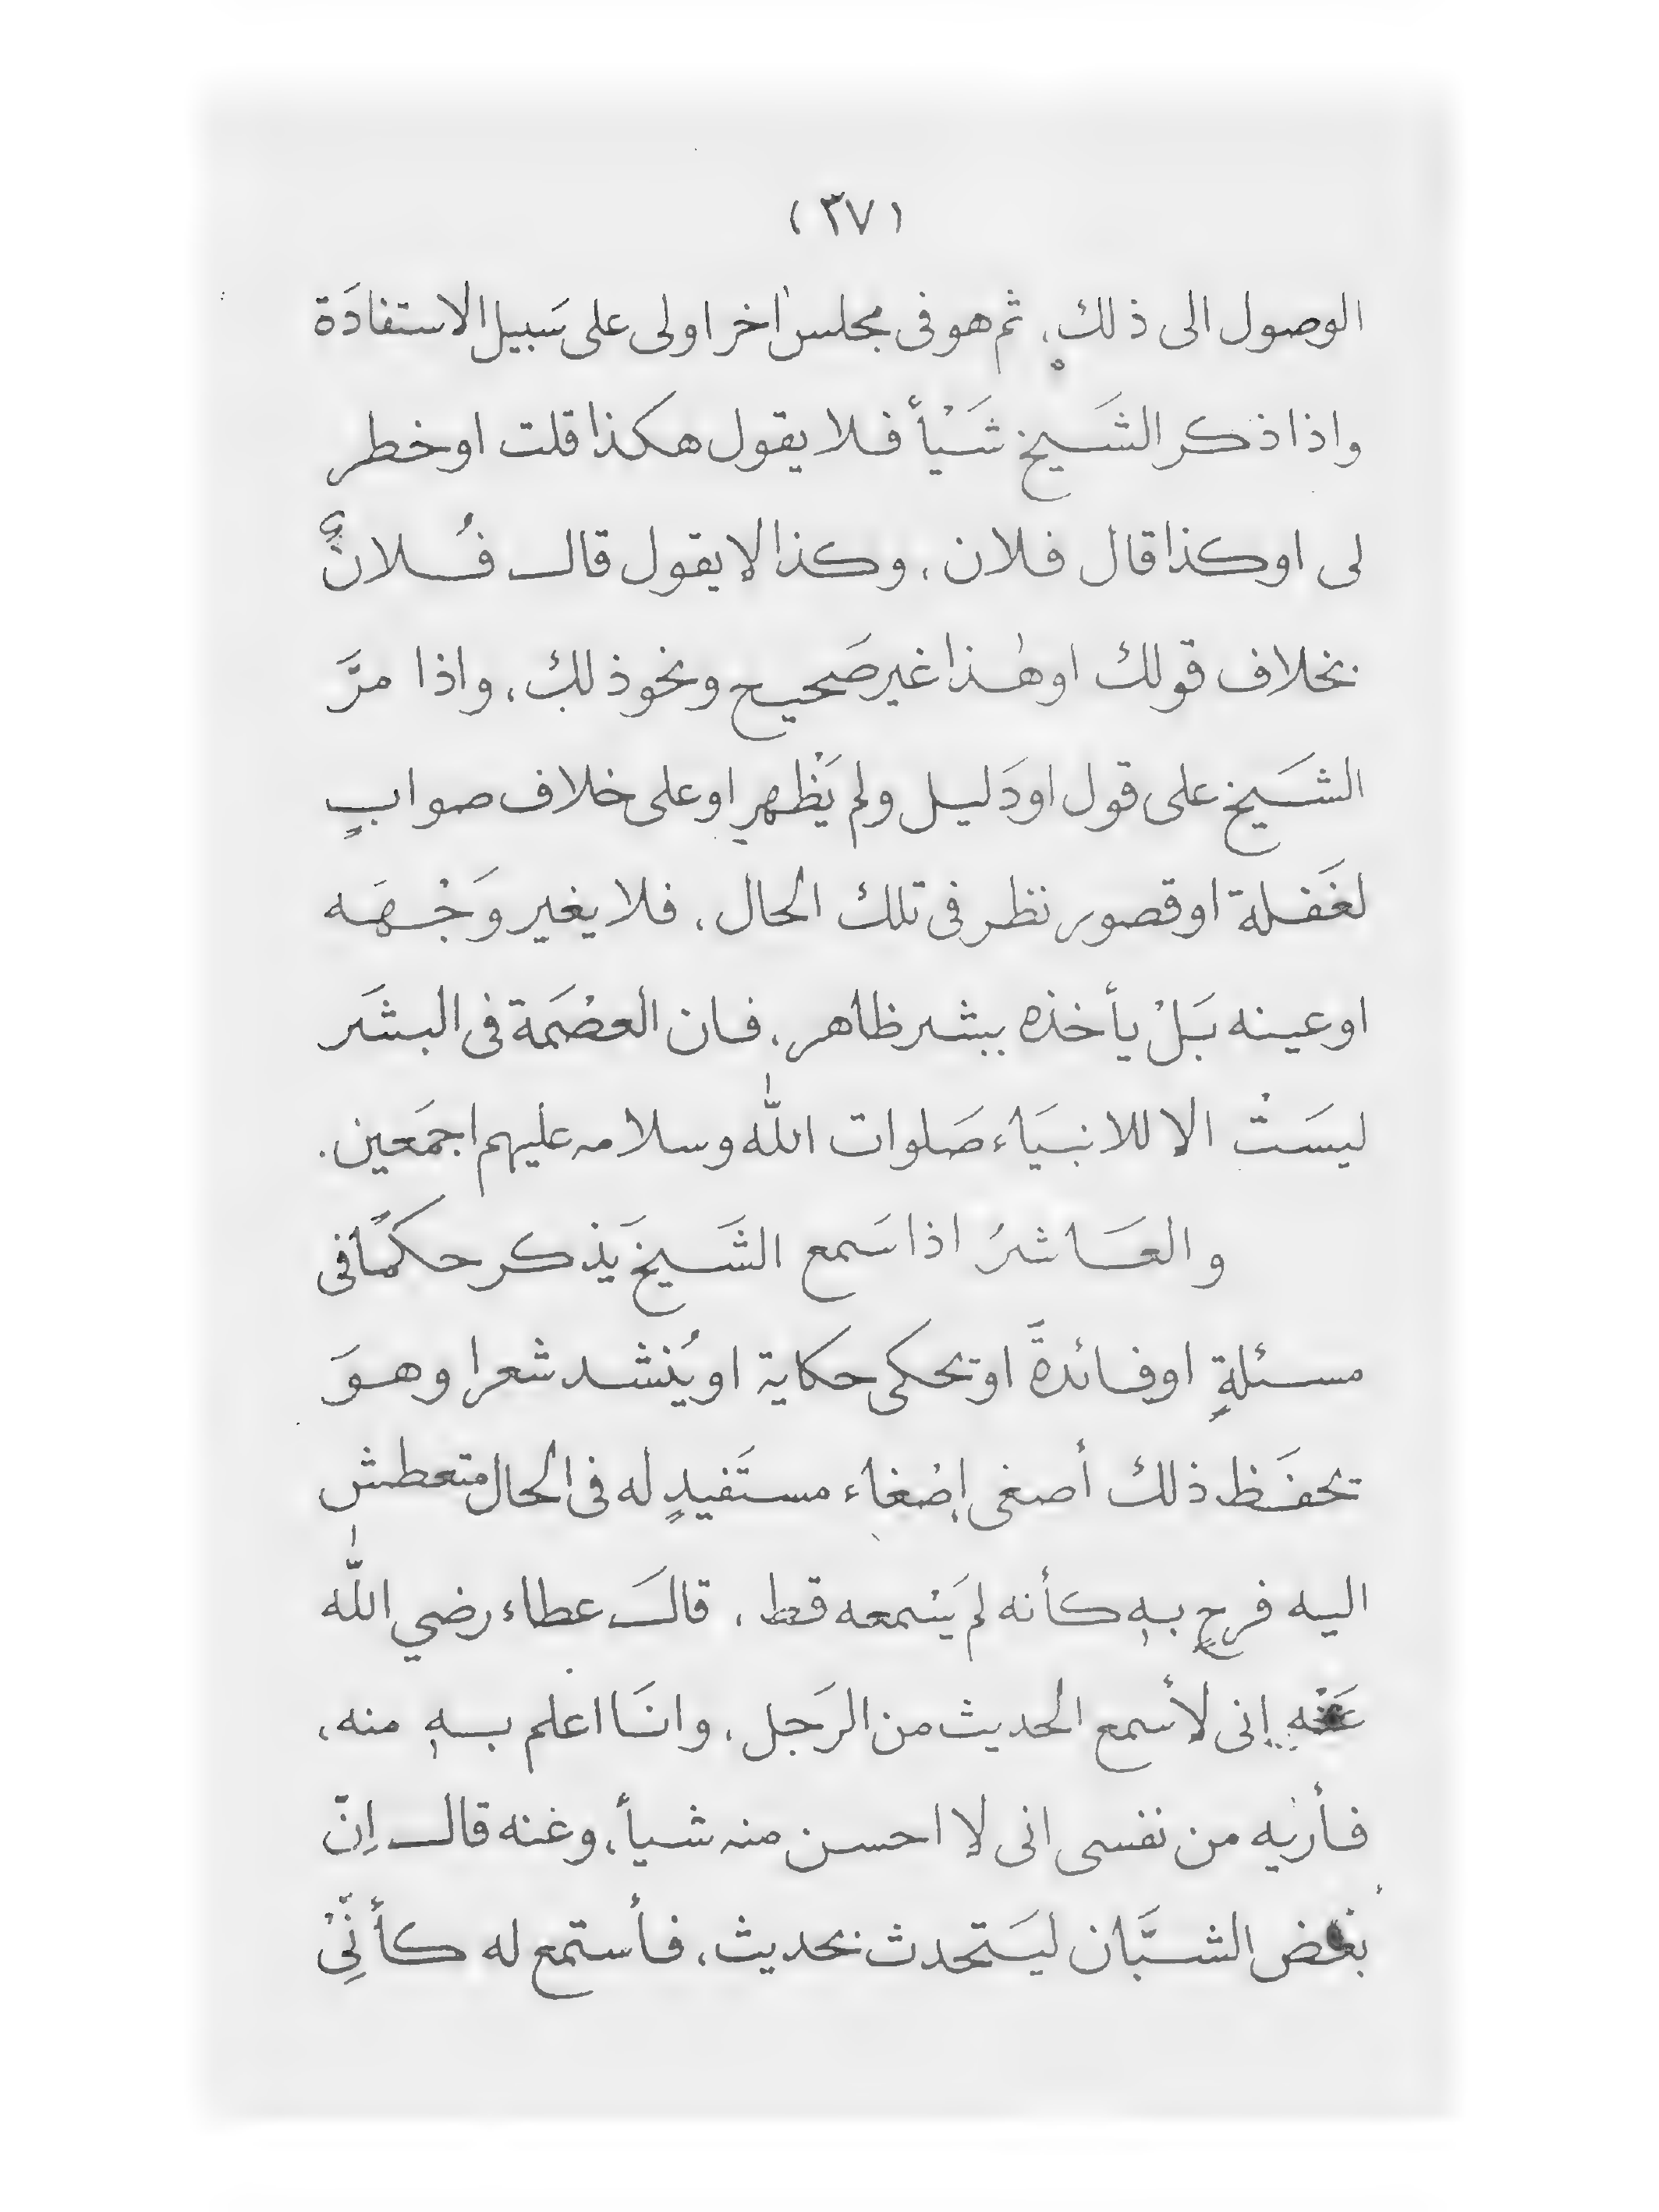 (٣٧)
الوصول الى ذلك، ثم هو فى مجلس اٰخر اولى على سَبيل الاستفادَة
واذا ذكر الشَيخ شَيْأً فلا يقول هكذا قلت او خطر
لى او كذا قال فلان، وكذا لا يقول قال فُلانٌ
بخلاف قولك او هٰذا غير صَحيح ونحو ذلك، واذا مرَّ
الشَيخ على قول او دَليل ولم يَظْهرِ او على خلاف صوابٍ
لغَفلة او قصور نظر فى تلك الحال، فلا يغير وَجْهَه
او عينه بَلْ يأخذه ببشر ظاهر، فان العصْمَة فى البشَر
ليسَتْ الا للانبيَاء صَلوات اللّٰه وسلامه عليهم اجمَعين.
والعَاشرُ اذا سَمع الشَيخ يَذكر حكمًا فى
مسئلةٍ او فائدةً او يحكى حكاية او يُنشد شعرا وهوَ
يحفَظ ذلك أصغى إصْغاء مستَفيدٍ له فى الحال متعطش
اليه فرحٍ بهٖ كأنه لم يَسْمعه قط، قالَ عطاء رضي اللّٰه
عَنْهِ إنى لأسمع الحديث من الرَجل، وانَا اعلم بهٖ منه،
فأريه من نفسى انى لا احسن منه شيأً، وعنه قال اِنّ
بعْض الشبَّان ليَتحدث بحديث، فأستمع له كأنِّىْ